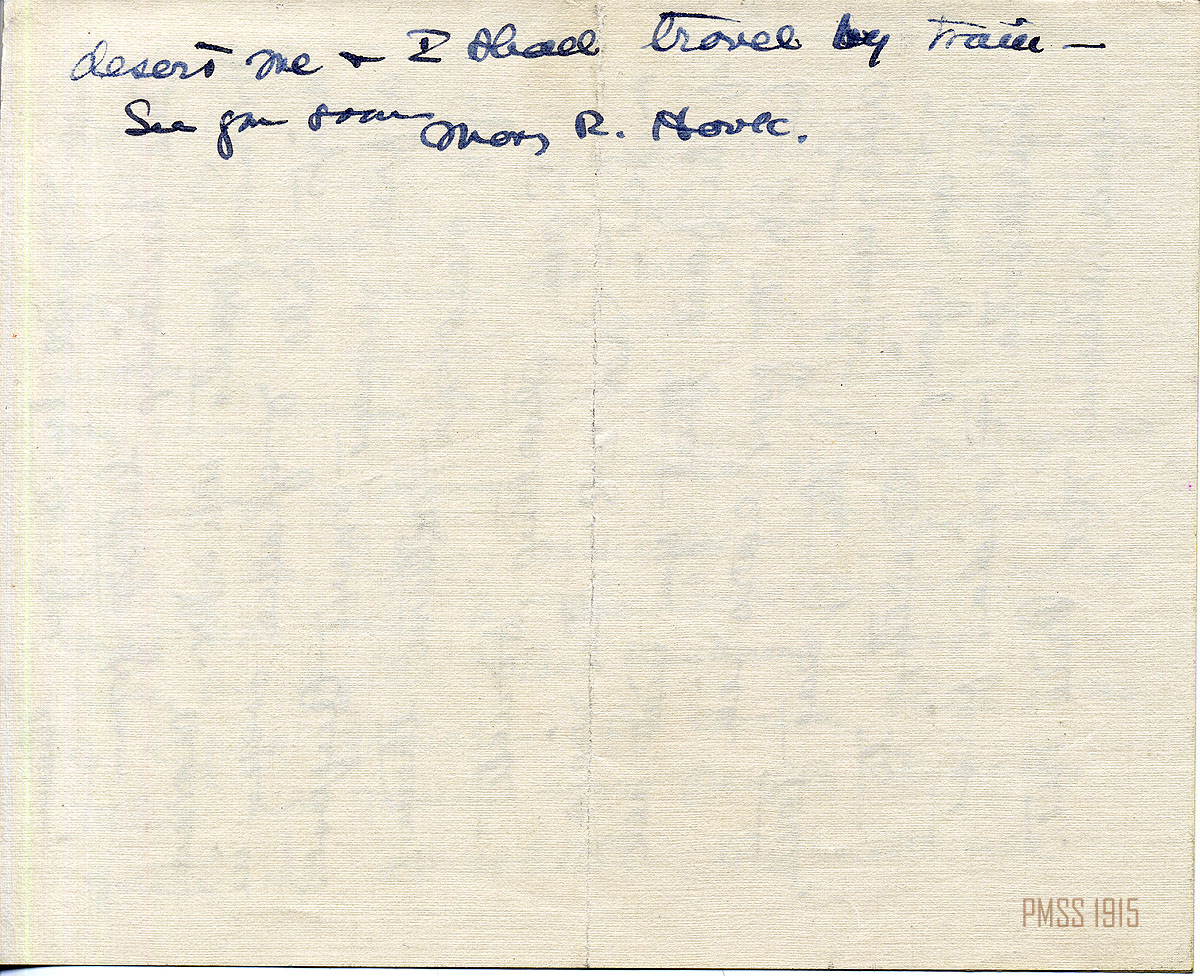 desert me & I shall travel by train —
See you soon
Mary R. Hovk.
PMSS 1915